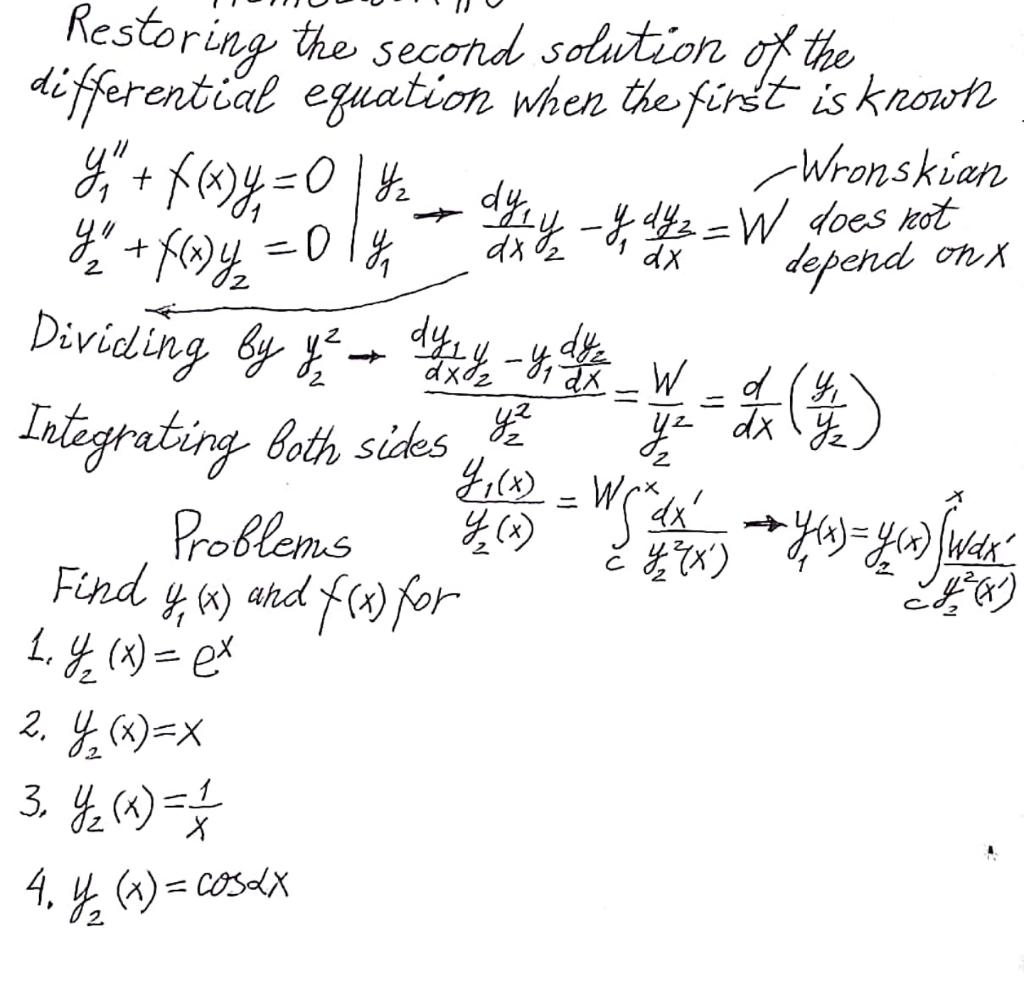 Restoring the second solution of the
differential equation when the first is known
y₁'' + f(x)y₁ = 0 | y₂
y₂'' + f(x)y₂ = 0 | y₁
→ dy₁/dx y₂ - y₁ dy₂/dx = W
Wronskian
does not
depend on x
Dividing by y₂² → (dy₁/dx y₂ - y₁ dy₂/dx)/y₂² = W/y₂² = d/dx (y₁/y₂)
Integrating both sides
y₁(x)/y₂(x) = W ∫_c^x dx'/y₂²(x') → y₁(x) = y₂(x) ∫_c^x Wdx'/y₂²(x')
Problems
Find y₁(x) and f(x) for
1. y₂(x) = eˣ
2. y₂(x) = x
3. y₂(x) = 1/x
4. y₂(x) = cosαx